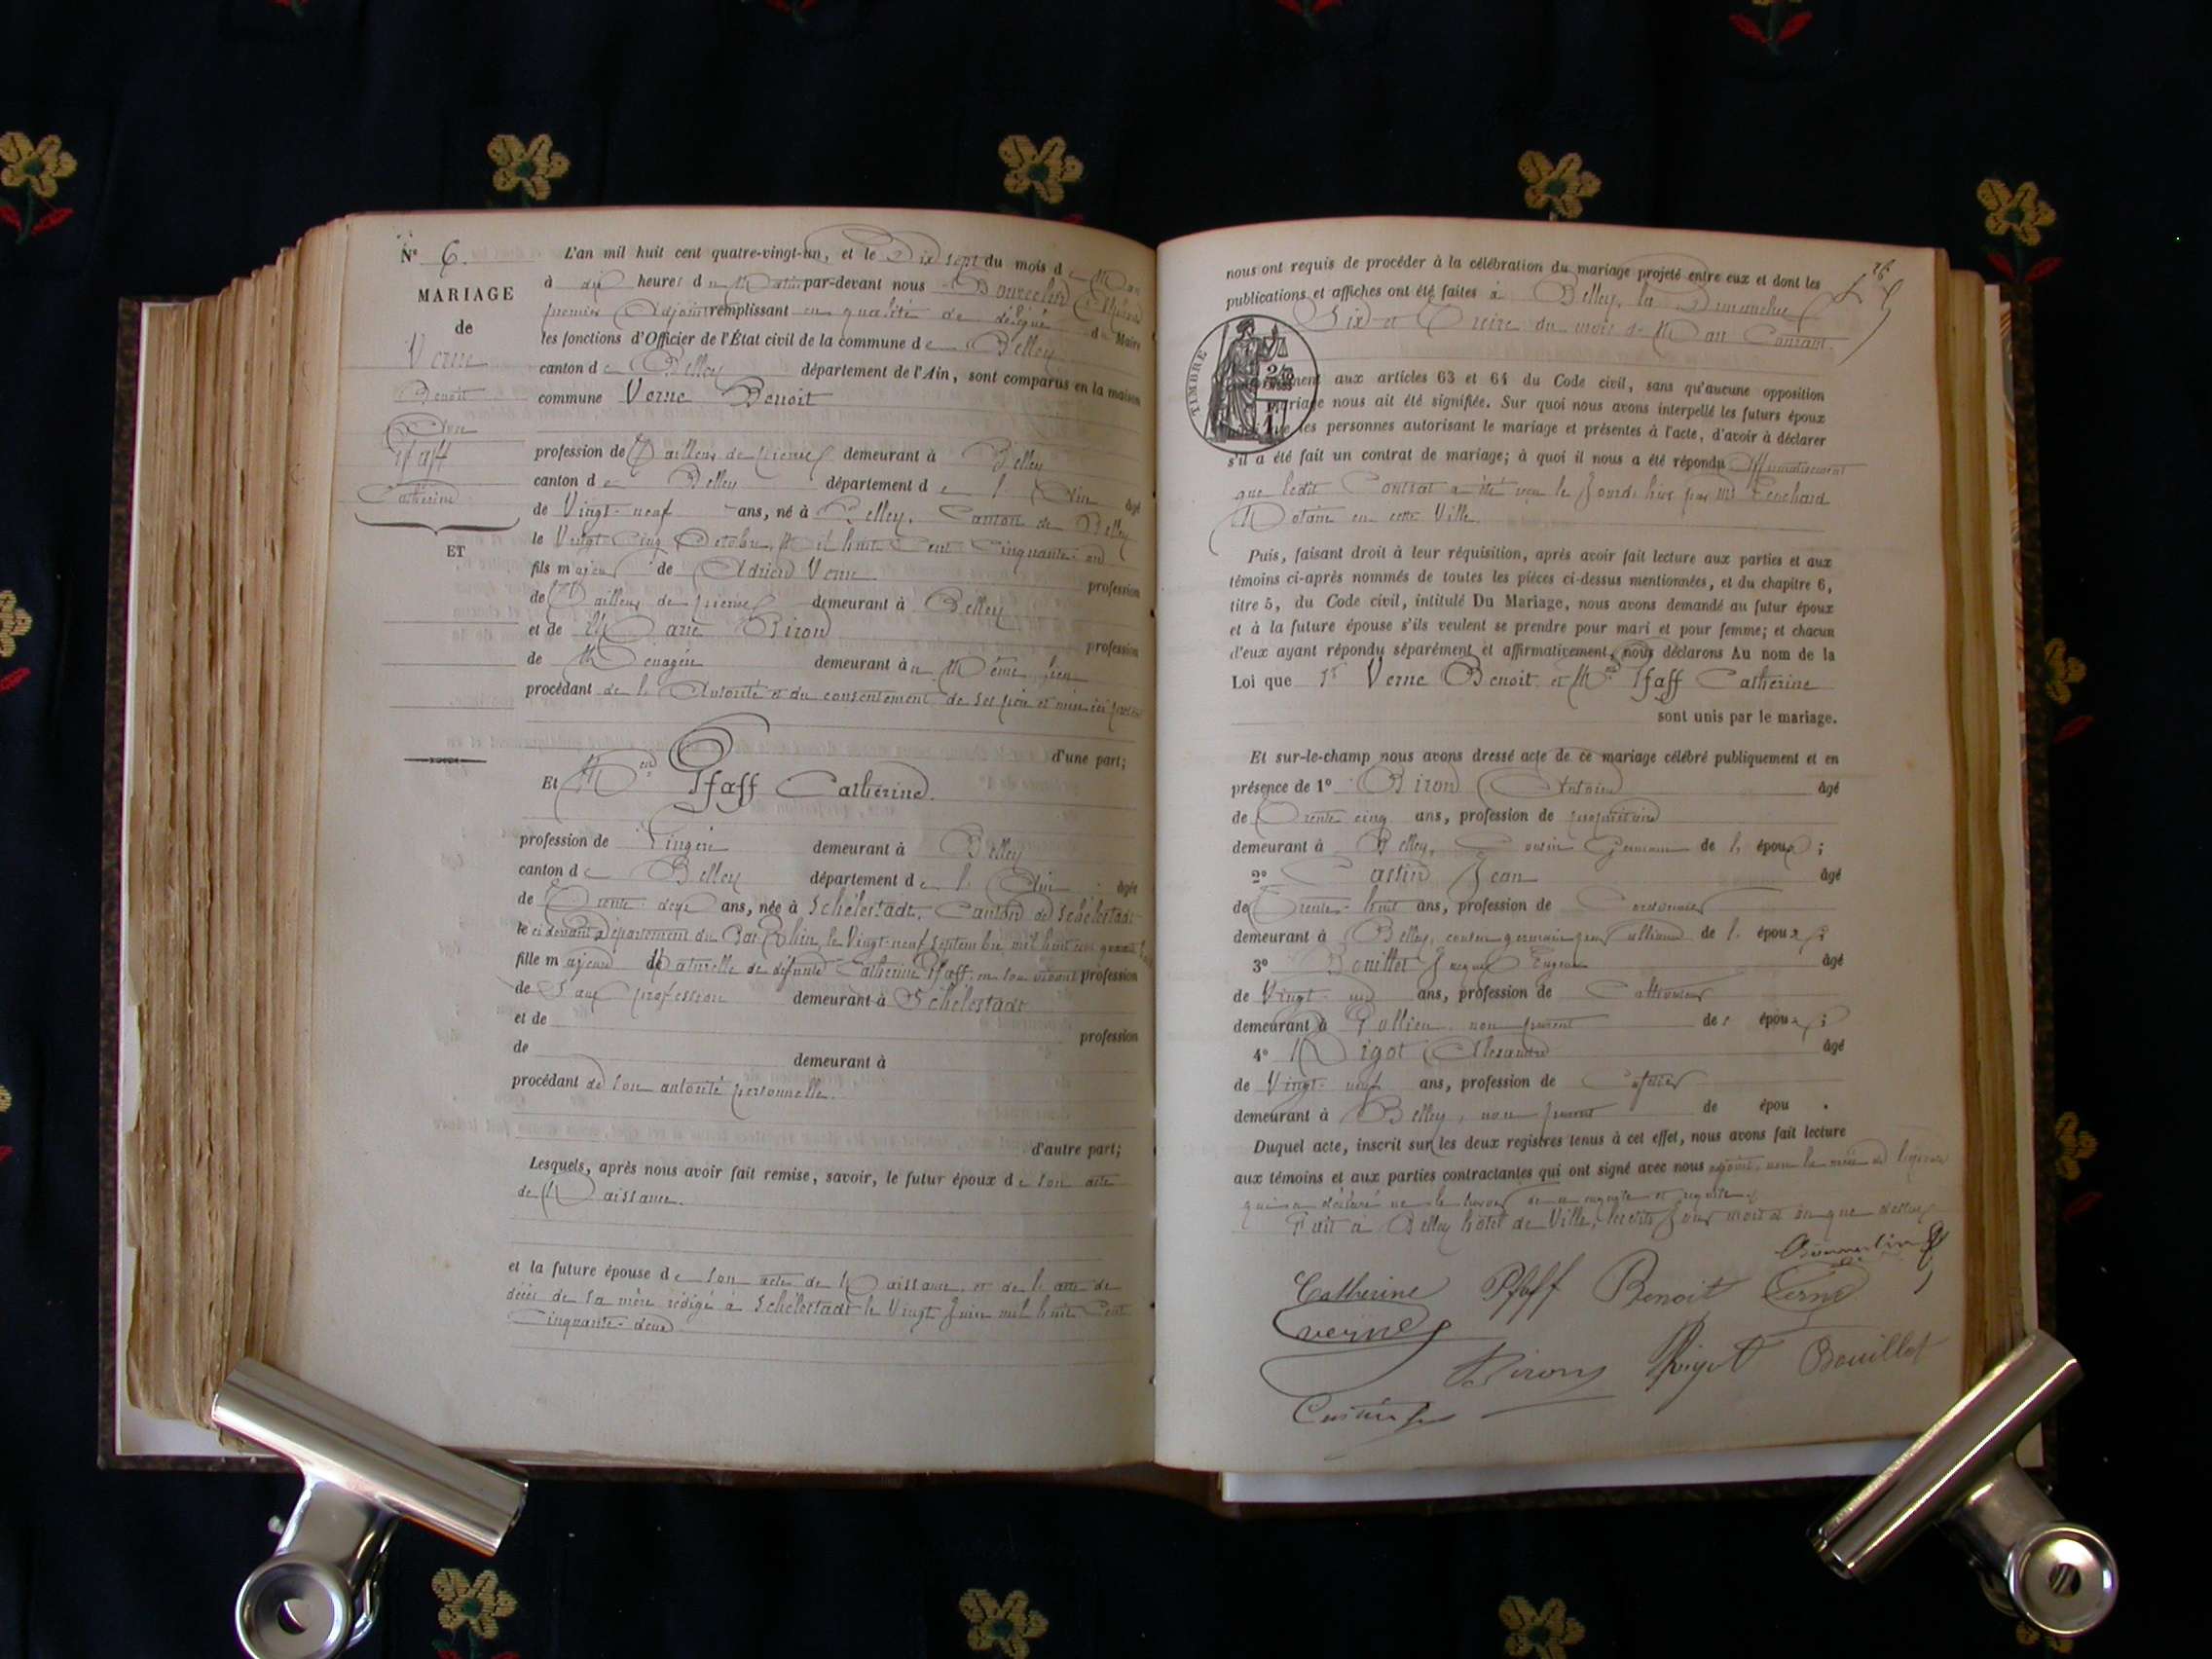 N° 6.
MARIAGE
de
Verne
Benoit
Avec
Pfaff
Catherine
ET
L'an mil huit cent quatre-vingt-un, et le Dix sept du mois de
à dix heures du Matin par-devant nous
premier Adjoint remplissant en qualité de délégué du Maire
les fonctions d'Officier de l'État civil de la commune de Belley
canton de Belley département de l'Ain, sont comparus en la maison
commune Verne Benoit
profession de Tailleur de pierres demeurant à Belley
canton de Belley département de l'Ain âgé
de Vingt-neuf ans, né à Belley, Canton de Belley
le Vingt Cinq Octobre Mil huit Cent Cinquante-un
fils majeur de Adrien Verne profession
de Tailleur de pierres demeurant à Belley
et de Marie Biron profession
de Ménagère demeurant au Même lieu
procédant de l'Autorité et du consentement de ses père et mère ici
d'une part;
Et Melle Pfaff Catherine.
profession de Lingère demeurant à Belley
canton de Belley département de l'Ain âgée
de Trente deux ans, née à Schélestadt, Canton de Schélestadt
le ci devant Département du Bas-Rhin, le Vingt-neuf Septembre mil huit cent
fille majeure Naturelle de défunte Catherine Pfaff, en son vivant profession
de Sans profession demeurant à Schélestadt
et de profession
de demeurant à
procédant de son autorité personnelle.
d'autre part;
Lesquels, après nous avoir fait remise, savoir, le futur époux de son acte
de Naissance.
et la future épouse de son acte de Naissance, et de l'acte de
décès de sa mère rédigé à Schélestadt le Vingt Juin mil huit Cent
Cinquante-deux
nous ont requis de procéder à la célébration du mariage projeté entre eux et dont les
publications et affiches ont été faites à Belley, les Dimanches
Six et Treize du mois de courant.
TIMBRE
aux articles 63 et 64 du Code civil, sans qu'aucune opposition
mariage nous ait été signifiée. Sur quoi nous avons interpellé les futurs époux
que les personnes autorisant le mariage et présentes à l'acte, d'avoir à déclarer
s'il a été fait un contrat de mariage; à quoi il nous a été répondu Affirmativement
que ledit Contrat a été reçu le Jour d'hier par Me
Notaire en cette Ville.
Puis, faisant droit à leur réquisition, après avoir fait lecture aux parties et aux
témoins ci-après nommés de toutes les pièces ci-dessus mentionnées, et du chapitre 6,
titre 5, du Code civil, intitulé Du Mariage, nous avons demandé au futur époux
et à la future épouse s'ils veulent se prendre pour mari et pour femme; et chacun
d'eux ayant répondu séparément et affirmativement, nous déclarons Au nom de la
Loi que Sr Verne Benoit et Melle Pfaff Catherine
sont unis par le mariage.
Et sur-le-champ nous avons dressé acte de ce mariage célébré publiquement et en
présence de 1° Biron Antoine âgé
de Trente cinq ans, profession de propriétaire
demeurant à Belley, Cousin Germain de l'époux;
2° Jean âgé
de Trente-huit ans, profession de Cordonnier
demeurant à Belley, cousin germain par alliance de l'époux;
3° Bouillot Jacques Eugène âgé
de Vingt-un ans, profession de Cultivateur
demeurant à Pollieu, non parent de s époux;
4° Rigot Alexandre âgé
de Vingt-neuf ans, profession de
demeurant à Belley, non parent de épou .
Duquel acte, inscrit sur les deux registres tenus à cet effet, nous avons fait lecture
aux témoins et aux parties contractantes qui ont signé avec nous adjoint, non la mère de l'époux
qui a déclaré ne le savoir de ce enquise et requise.
Fait à Belley hôtel de Ville, lesdits Jour mois et an que dessus
Catherine Pfaff Benoit Verne
Verne
Biron Rigot Bouillot